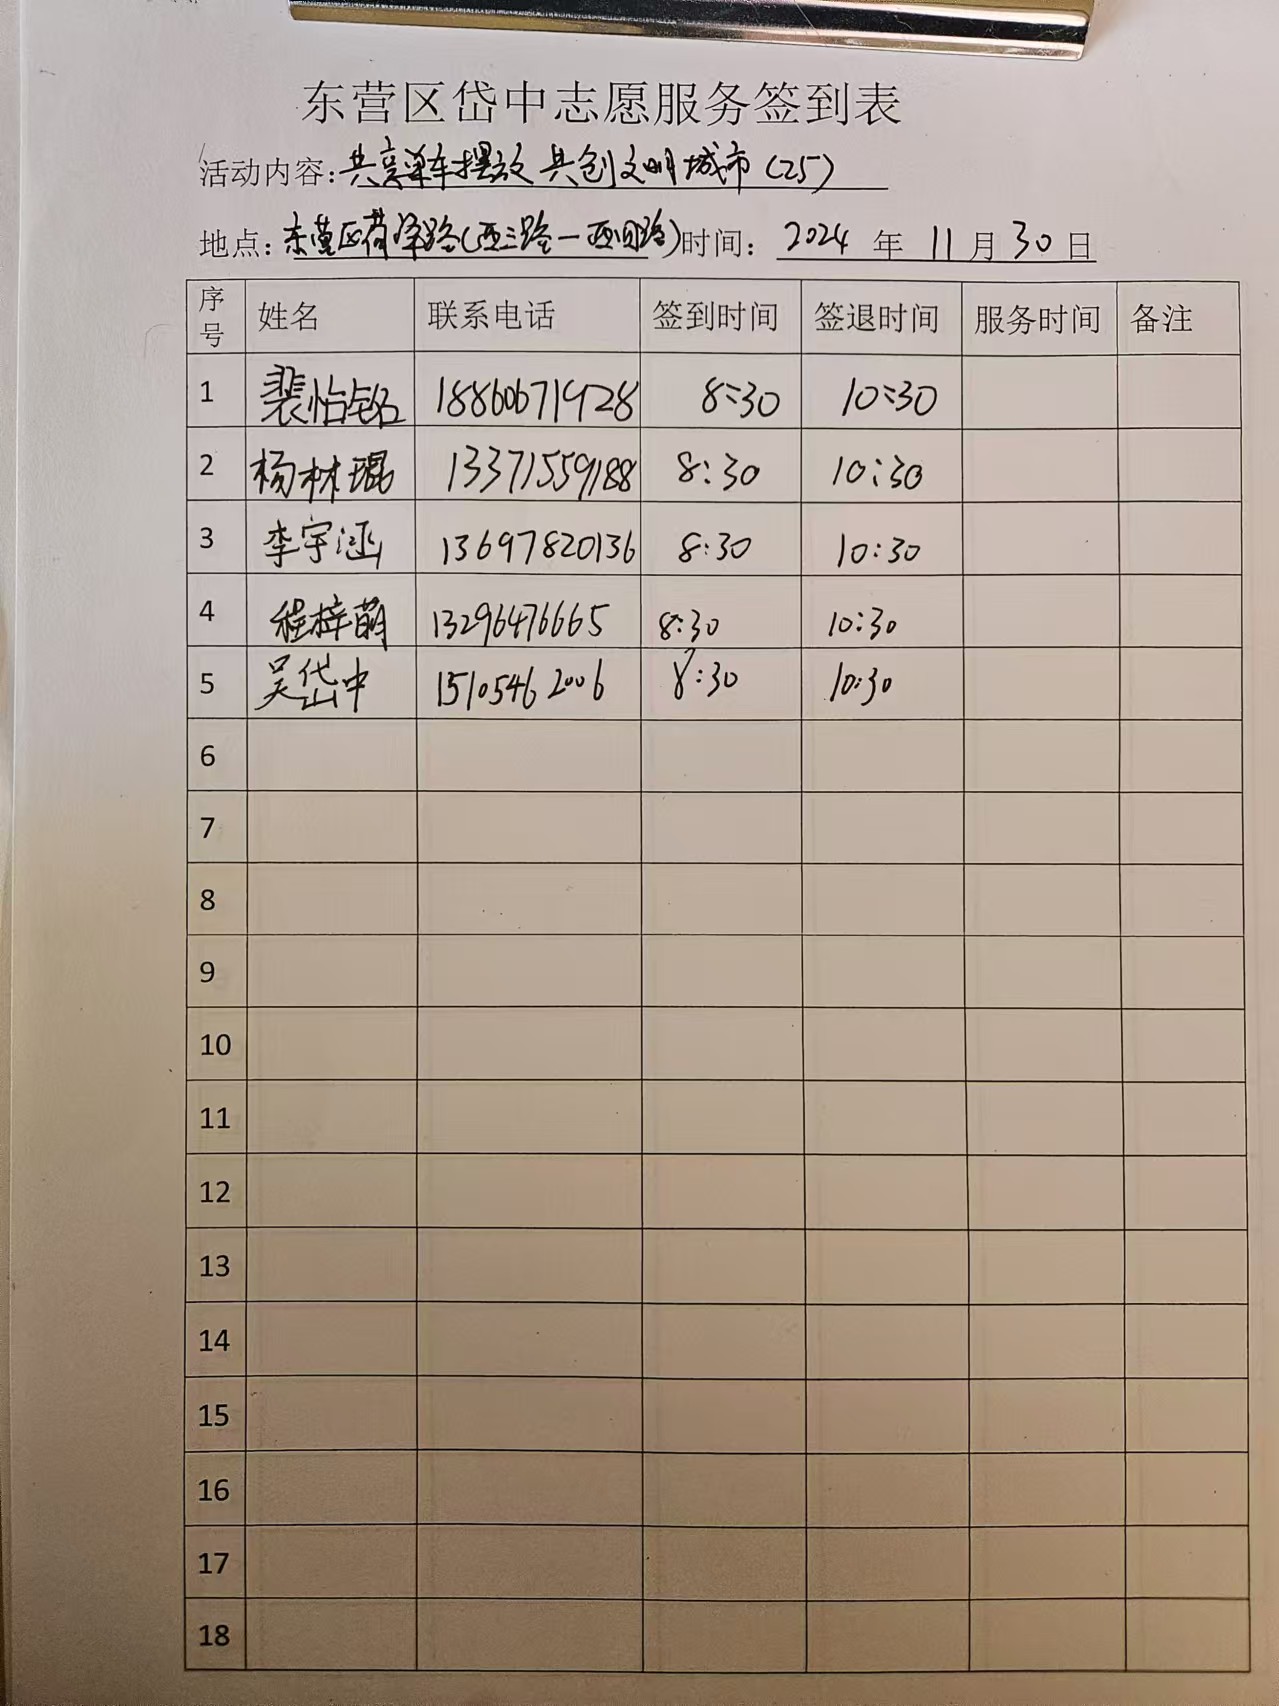 东营区岱中志愿服务签到表
活动内容:共享单车摆放 共创文明城市(25)
地点:东营区菏泽路(西三路一西四路)时间: 2024 年 11 月 30 日
序号 姓名 联系电话 签到时间 签退时间 服务时间 备注
1 裴怡铭 18860671928 8:30 10:30
2 杨林琨 13371559188 8:30 10:30
3 李宇涵 13697820136 8:30 10:30
4 程梓萌 13296476665 8:30 10:30
5 吴岱中 15105462006 8:30 10:30
6
7
8
9
10
11
12
13
14
15
16
17
18